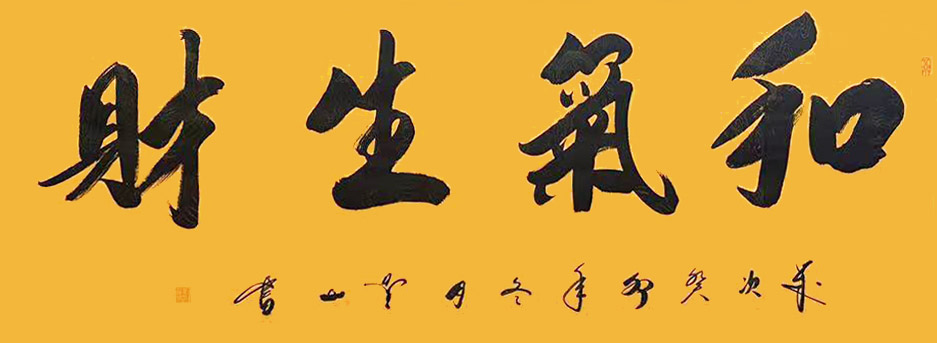 和氣生財
歲次癸卯年冬月 山書